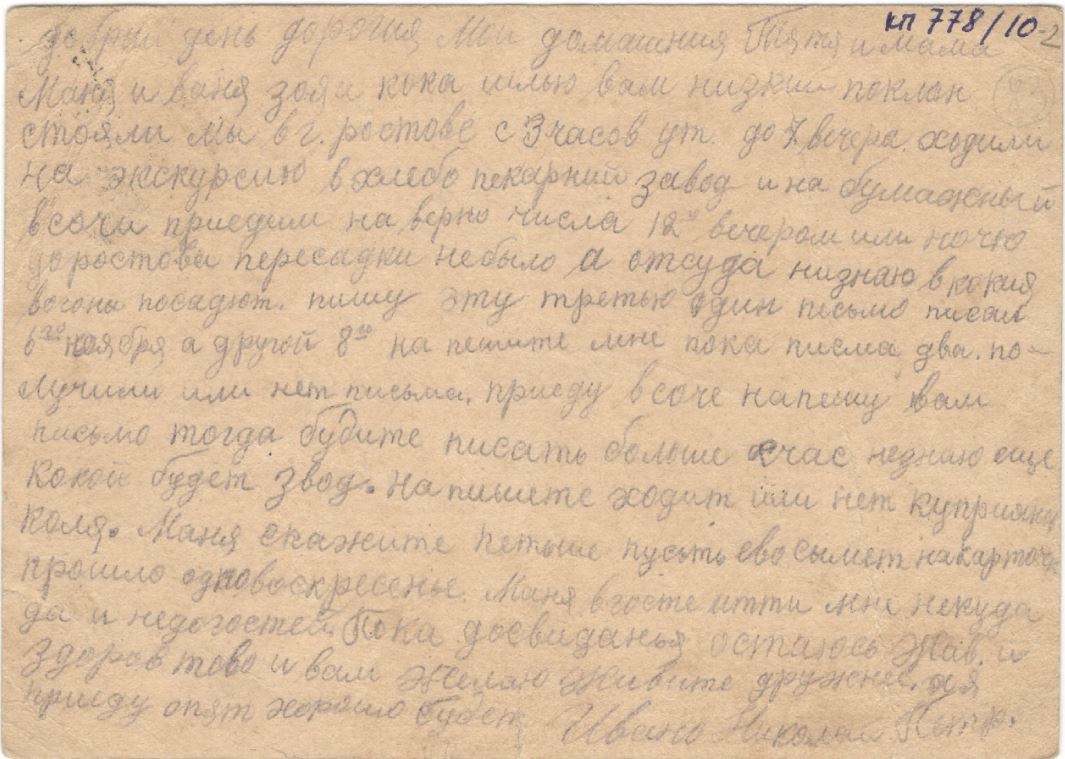 кп 778/10-2
добрый день дорогия Мои домашния Тятя и мама
Маня и ваня зоя и кока шлью вам низкий поклон
стояли мы в г. ростове с 3 часов ут. до 7 вечера. ходили
на экскурсию в хлебо пекарний завод и на бумажный
в сочи приедим на верно числа 12го вечером или ночю
до ростова пересадки небыло а отсуда низнаю в какия
вогоны посадют. пишу эту третью один письмо писал
6го ноября а другой 8го на пешите мне пока писма два. по-
лучили или нет письма. приеду в соче напешу вам
письмо тогда будите писать больше счас незнаю еще
кокой будет звод. на пишете ходит или нет
коля. Маня скажите петьше пусьть ево сымет на
прошло одно воскресенье. Маня в госте итти мне некуда
да и недогостей. Пока досвиданья остаюсь жив. и
здоров тово и вам желаю живите дружнее. я
приеду опят хорошо будет Ивано Николай Петр.